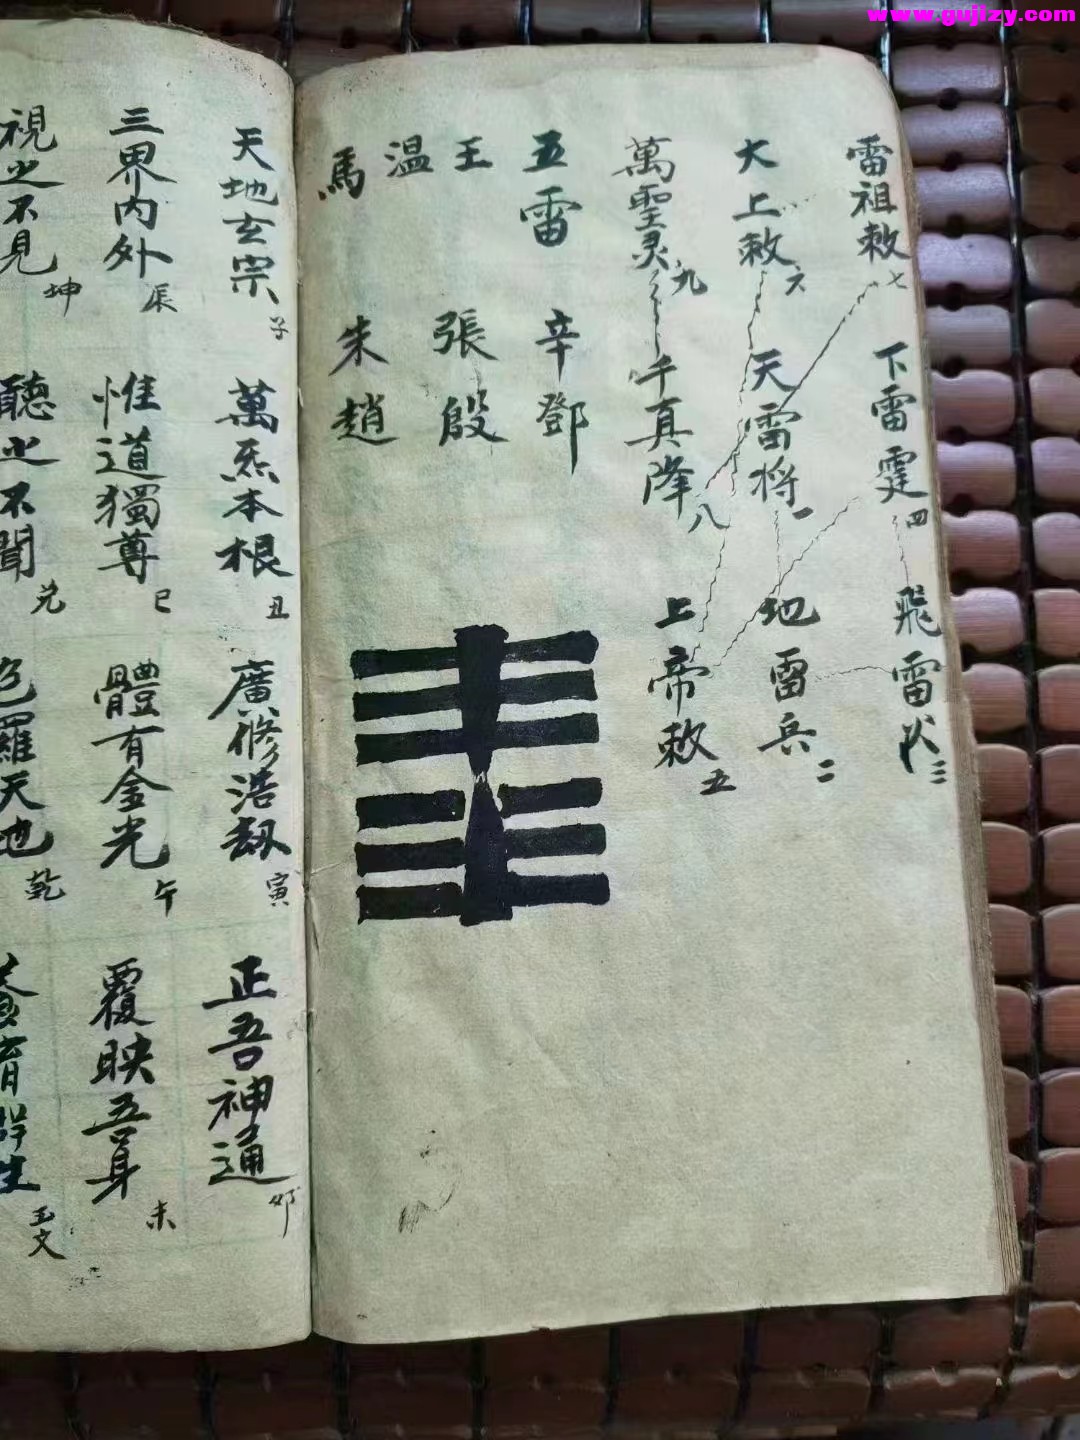 www.gujizy.com
雷祖敕 七
下雷霆 四
飛雷伏 三
大上敕 六
天雷将 一
地雷兵 二
萬聖灵 九
千真降 八
上帝敕 五
五雷
辛鄧
王
張殷
温
馬
朱趙
天地玄宗 子
萬炁本根 丑
廣修浩劫 寅
正吾神通 卯
三界内外 辰
惟道獨尊 巳
體有金光 午
覆映吾身 未
視之不見 坤
聽之不聞 兌
包羅天地 乾
養育群生 玉文